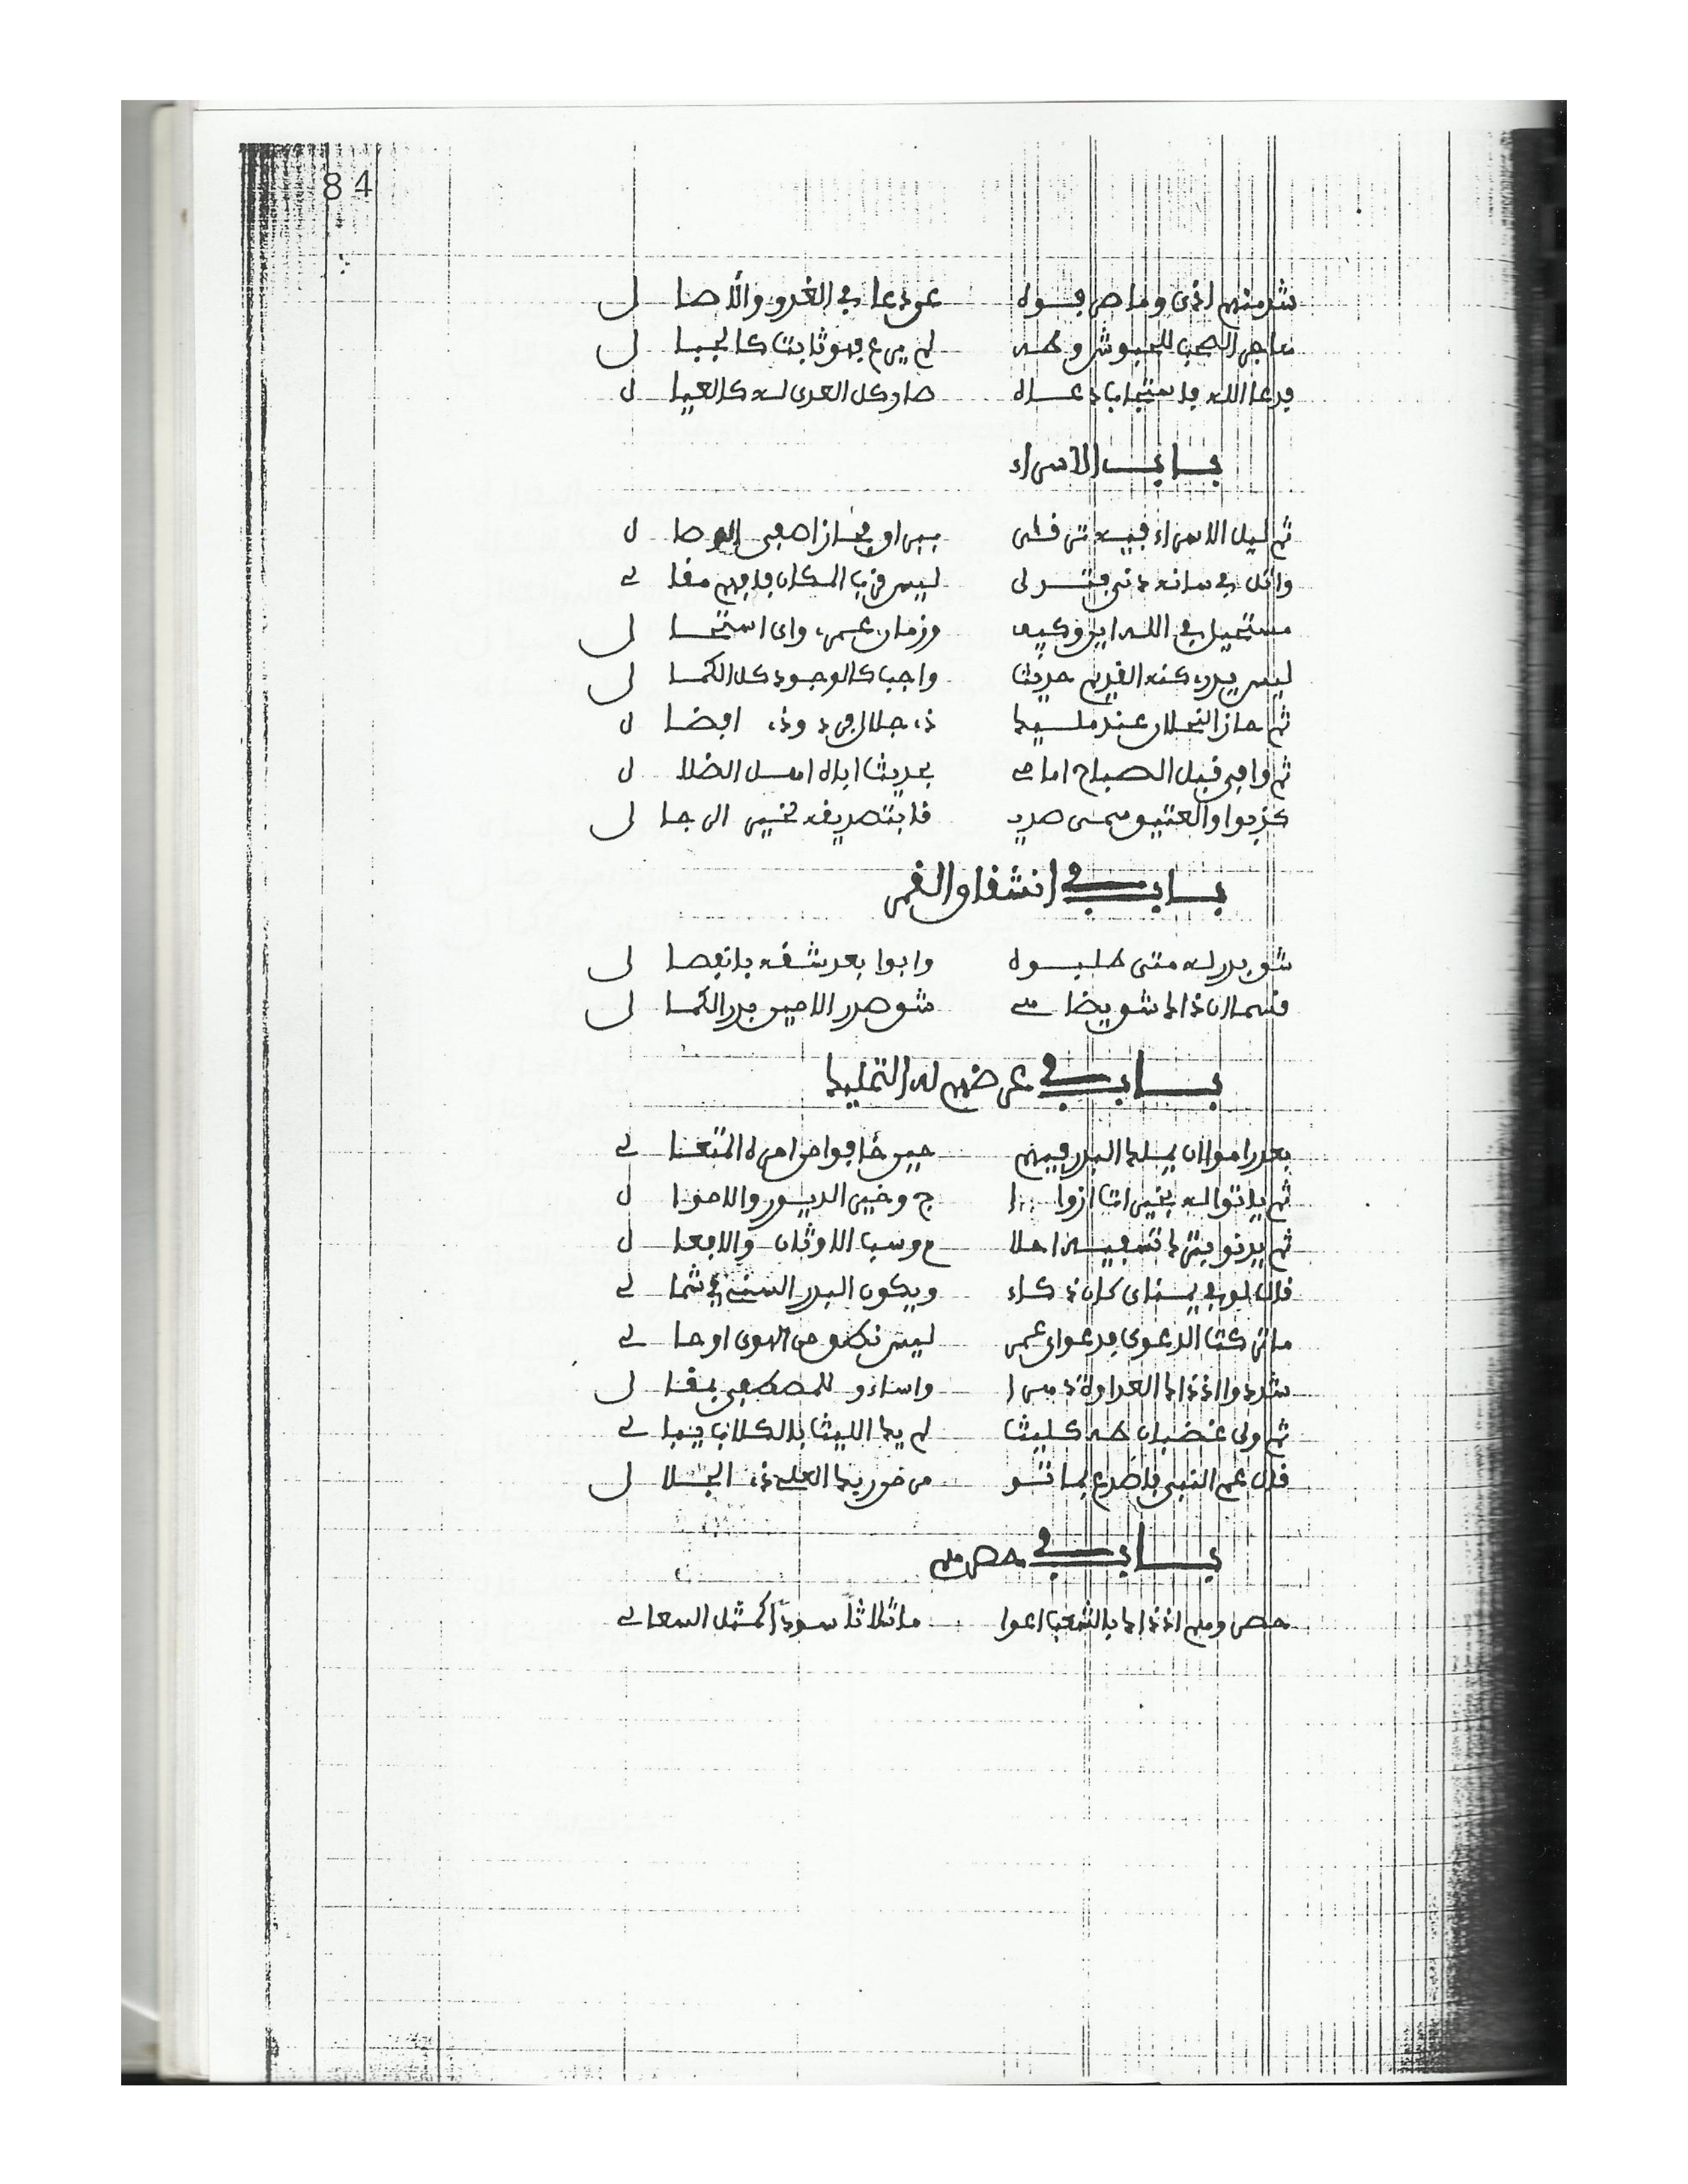 84
شد منهم اذى وما صر فوه عود عا في الغدو والأصال
هاجر الصحب للحبوش وطه لم يرع فهو ثابت كالجبال
فدعا الله فاستجاب دعاه صار كل العدى له كالعيال
باب الاسراء
ثم ليل الاسراء فيه ترقى
واتل في شانه دنى فتدلى ليس قرب المكان فافهم مقالي
مستحيل في الله اين وكيف وزمان عمره واى استحال
ليس يدرى كنه القديم حديث واجب كالوجود كل الكمال
ثم حاز النجلان عند مليك ذى جلال فرد وذى افضال
ثم وافى قبل الصباح اماما بحديث اباه اهل الضلال
كذبوا والعتيق سمى صديقا بتصديقه لخير الرجال
باب في انشقاق القمر
شق بدر له متى طلبوه وابوا بعد شقه بانفصال
قسما ان ذاك شق يضاهي شق صدر الامين بدر الكمال
باب في عرضهم له التمليك
بعد راموا ان يملك البدر فيهم حين خافوا من امره المتعالي
ثم ياتوا له بخير اتاازواج وخير الديور والاموال
ثم يدنو بترك تسفيه احلام وسب الاوثان والافعال
قال لو في يمناي كان ذكاء ويكون البدر السني في شمالي
ما تركت الدعوى فدعواى عمرى ليس نطق من الهوى او حالي
شددوا اذ ذاك العداوة دهرا واساءو للمصطفى بمقال
ثم ولى غضبان طه كليث لم يك الليث بالكلاب يبالي
قال عم النبي فاصدع بما تؤمر من ضوريك العلي ذى الجلال
باب في حصرهم
حصروهم اذ ذاك بالشعب اعواما ثلاثا سودا كمثل السعالي